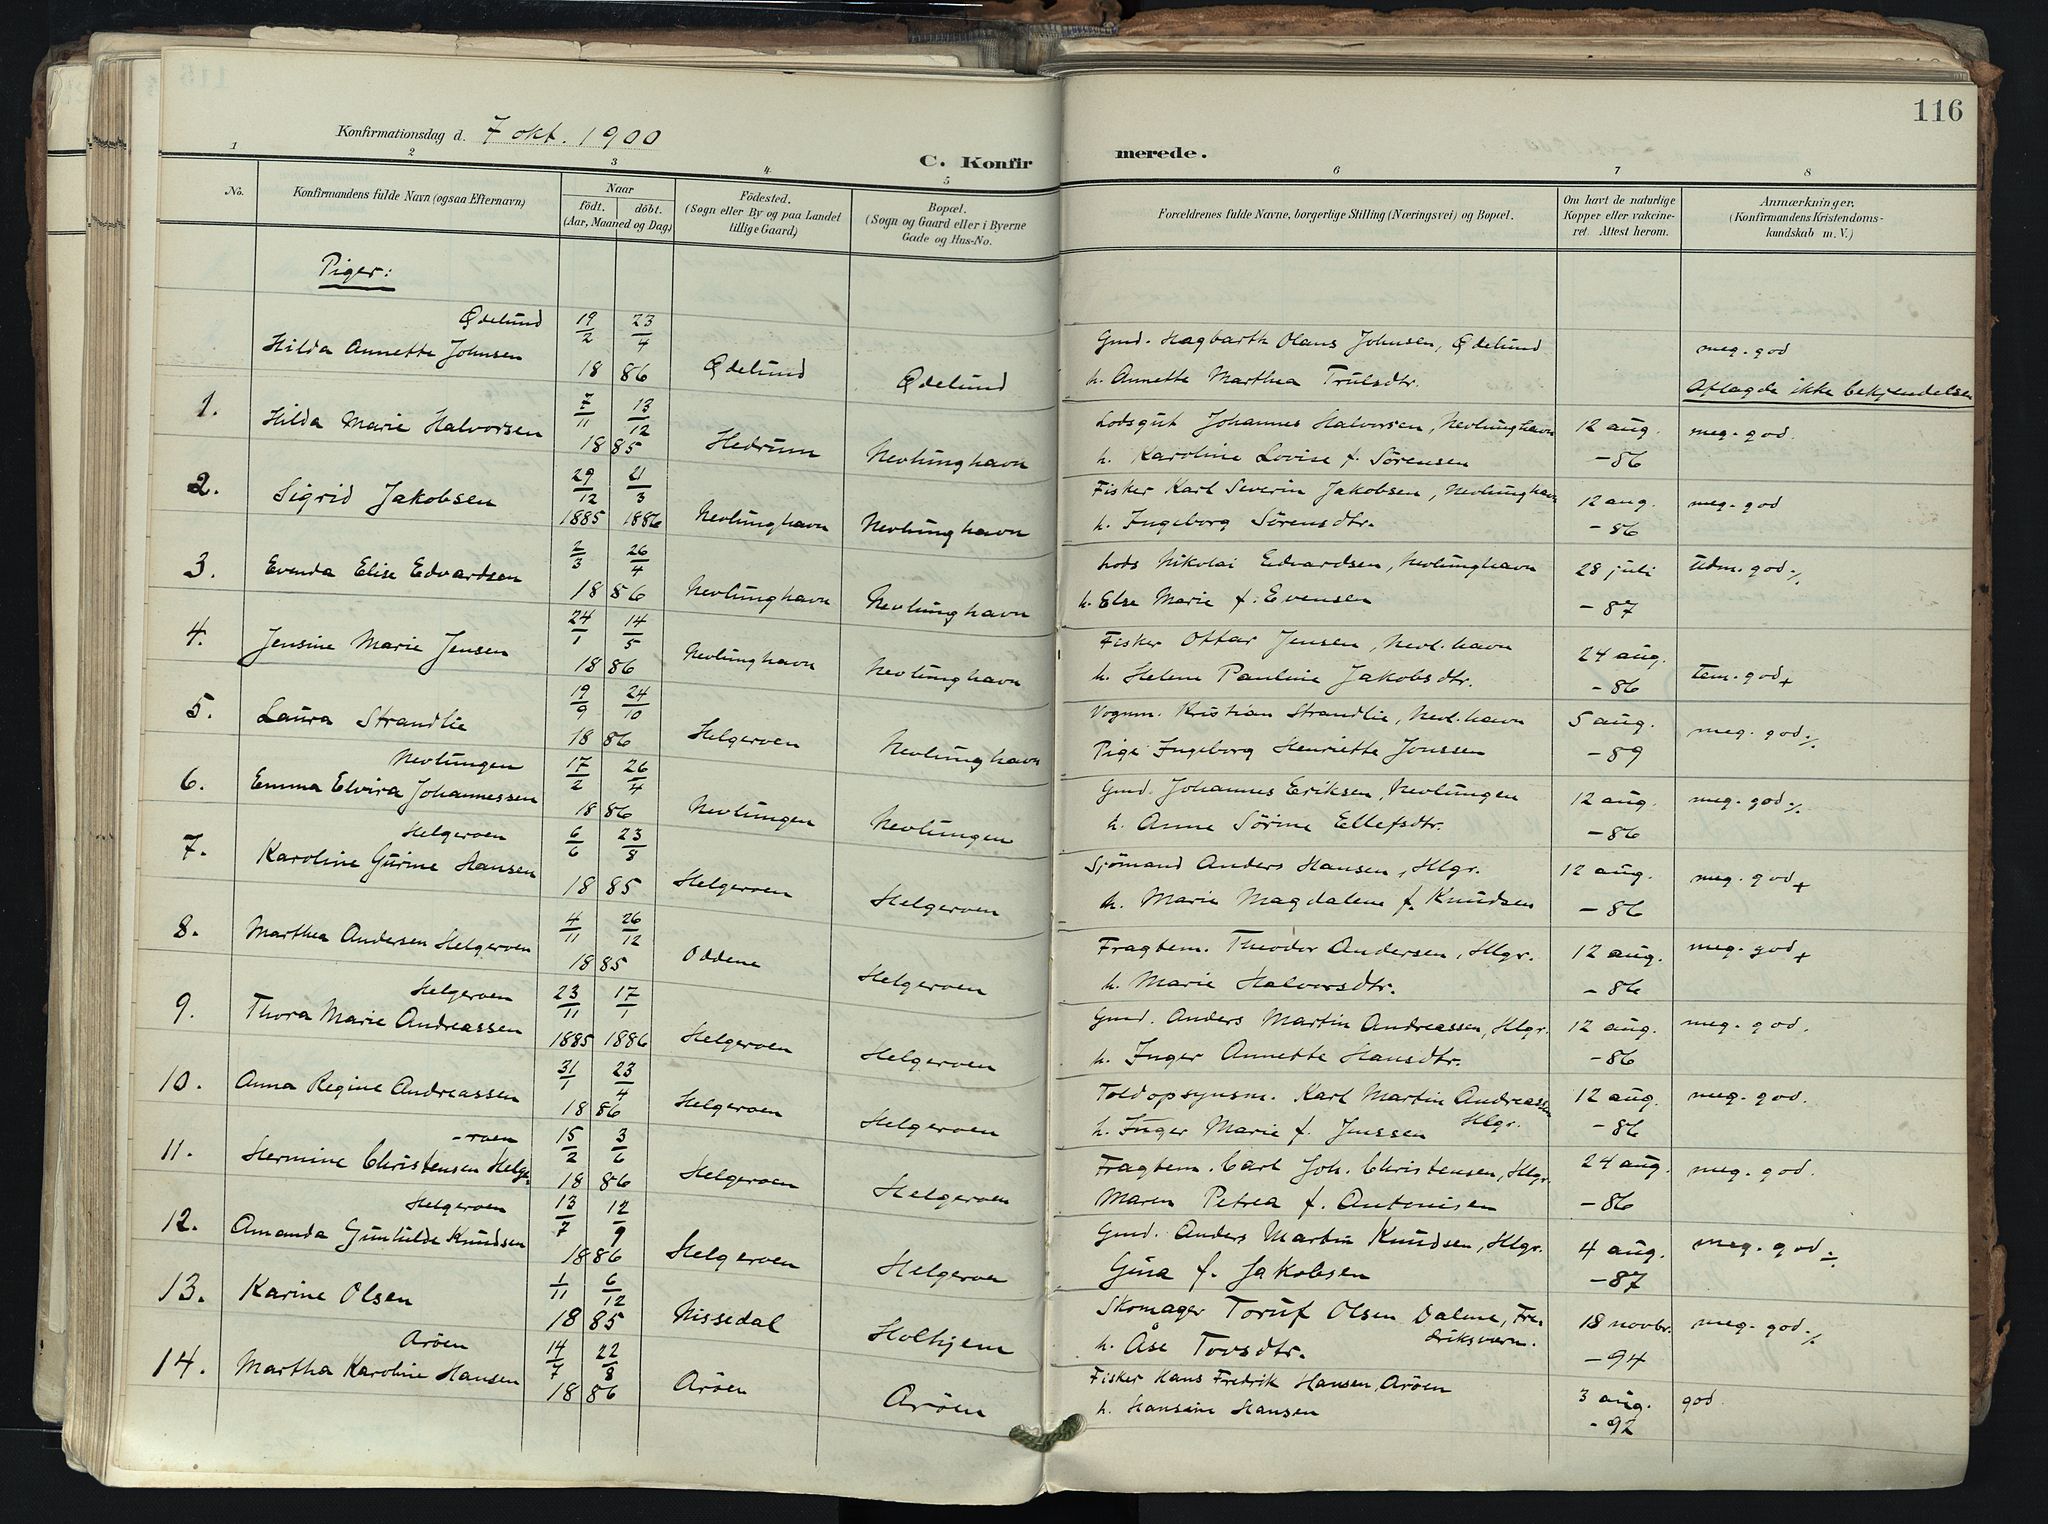 116
Konfirmationsdag d. 7 okt. 1900
C. Konfirmerede.
1 2 3 4 5 6 7 8
No.
Konfirmandens fulde Navn (ogsaa Efternavn)
Naar
födt. döbt.
(Aar, Maaned og Dag)
Födested.
(Sogn eller By og paa Landet
tillige Gaard)
Bopæl.
(Sogn og Gaard eller i Byerne
Gade og Hus-No.
Forældrenes fulde Navne, borgerlige Stilling (Næringsvei) og Bopæl.
Om havt de naturlige
Kopper eller vakcine-
ret. Attest herom.
Anmærkninger.
(Konfirmandens Kristendoms-
kundskab m. V.)
Piger:
Ødelund
Hilda Annette Johnsen 19/2 23/4 1886 Ødelund Ødelund
Gmd. Hagbarth Olaus Johnsen, Ødelund meg. god
h. Annette Marthea Trulsdtr. Aflagde ikke bekjendelsen
1. Hilda Marie Halvorsen 7/11 13/12 1885 Hedrum Nevlunghavn
Lodsgut Johannes Halvorsen, Nevlunghavn 12 aug. meg. god.
h. Karoline Lovise f. Sörensen -86
2. Sigrid Jakobsen 29/12 1885 21/3 1886 Nevlunghavn Nevlunghavn
Fisker Karl Severin Jakobsen, Nevlunghavn 12 aug. meg. god
h. Ingeborg Sörensdtr. -86
3. Evenda Elise Edvardsen 2/3 26/4 1886 Nevlunghavn Nevlunghavn
Lods Nikolai Edvardsen, Nevlunghavn 28 juli Udm. god ./.
h. Else Marie f. Evensen -87
4. Jensine Marie Jensen 24/1 14/5 1886 Nevlunghavn Nevlunghavn
Fisker Ottar Jensen, Nevl.havn 24 aug. tem. god +
h. Helene Pauline Jakobsdtr. -86
5. Laura Strandlie 19/9 24/10 1886 Helgeroen Nevlunghavn
Vognm. Kristian Strandlie, Nevl.havn 5 aug. meg. god ./.
Pige Ingeborg Henriette Jonssen -89
Nevlungen
6. Emma Elvira Johannessen 17/2 26/4 1886 Nevlungen Nevlungen
Gmd. Johannes Eriksen, Nevlungen 12 aug. meg. god ./.
h. Anne Sörine Ellefsdtr. -86
Helgeroen
7. Karoline Gurine Hansen 6/6 23/8 1885 Helgeroen Helgeroen
Sjömand Anders Hansen, Hlgr. 12 aug. meg. god +
h. Marie Magdalene f. Knudsen -86
8. Marthea Andersen Helgeroen 4/11 26/12 1885 Oddene Helgeroen
Fragtem. Theodor Andersen, Hlgr. 12 aug. meg. god +
h. Marie Halvorsdtr. -86
Helgeroen
9. Thora Marie Andreassen 23/11 1885 17/1 1886 Helgeroen Helgeroen
Gmd. Anders Martin Andreassen, Hlgr. 12 aug. meg. god.
h. Inger Annette Hansdtr. -86
10. Anna Regine Andreassen 31/1 23/4 1886 Helgeroen Helgeroen
Toldopsynsm. Karl Martin Andreassen Hlgr. 12 aug. meg. god.
h. Inger Marie f. Jenssen -86
-roen
11. Hermine Christensen Helge- 15/2 3/6 1886 Helgeroen Helgeroen
Fragtem. Carl Joh. Christensen, Hlgr. 24 aug. meg. god.
Maren Petrea f. Antonisen -86
Helgeroen
12. Amanda Gunhilde Knudsen 13/7 12/9 1886 Helgeroen Helgeroen
Gmd. Anders Martin Knudsen, Hlgr. 4 aug. meg. god ÷
Gina f. Jakobsen -87
13. Karine Olsen 1/11 6/12 1885 Nissedal Holhjem
Skomager Toruf Olsen Dalene, Fre-
driksværn. 18 novbr. meg. god ./.
h. Åse Tovsdtr. -94
Aröen
14. Martha Karoline Hansen 14/7 22/8 1886 Aröen Aröen
Fisker Hans Fredrik Hansen, Aröen 3 aug. god.
h. Hansine Hansen -92